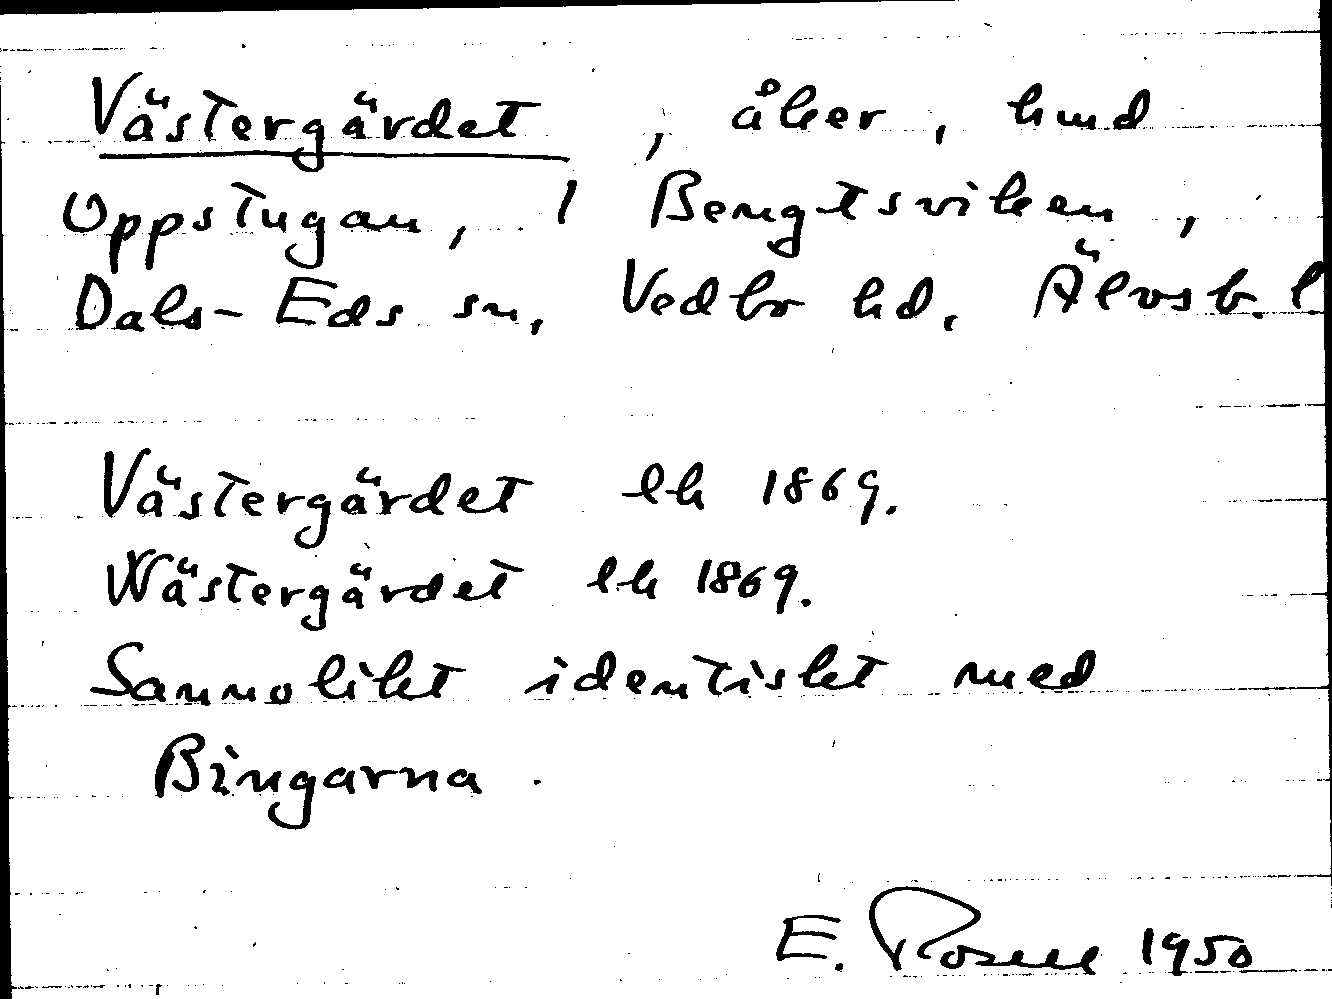 Västergärdet, åker, hmd
Uppstugan, 1 Bengtsviken,
Dals-Eds sn, Vedbo hd. Älvsb. l
Västergärdet lh 1869.
Wästergärdet lh 1869.
Sannolikt identiskt med
Bingarna.
E. Rosell 1950